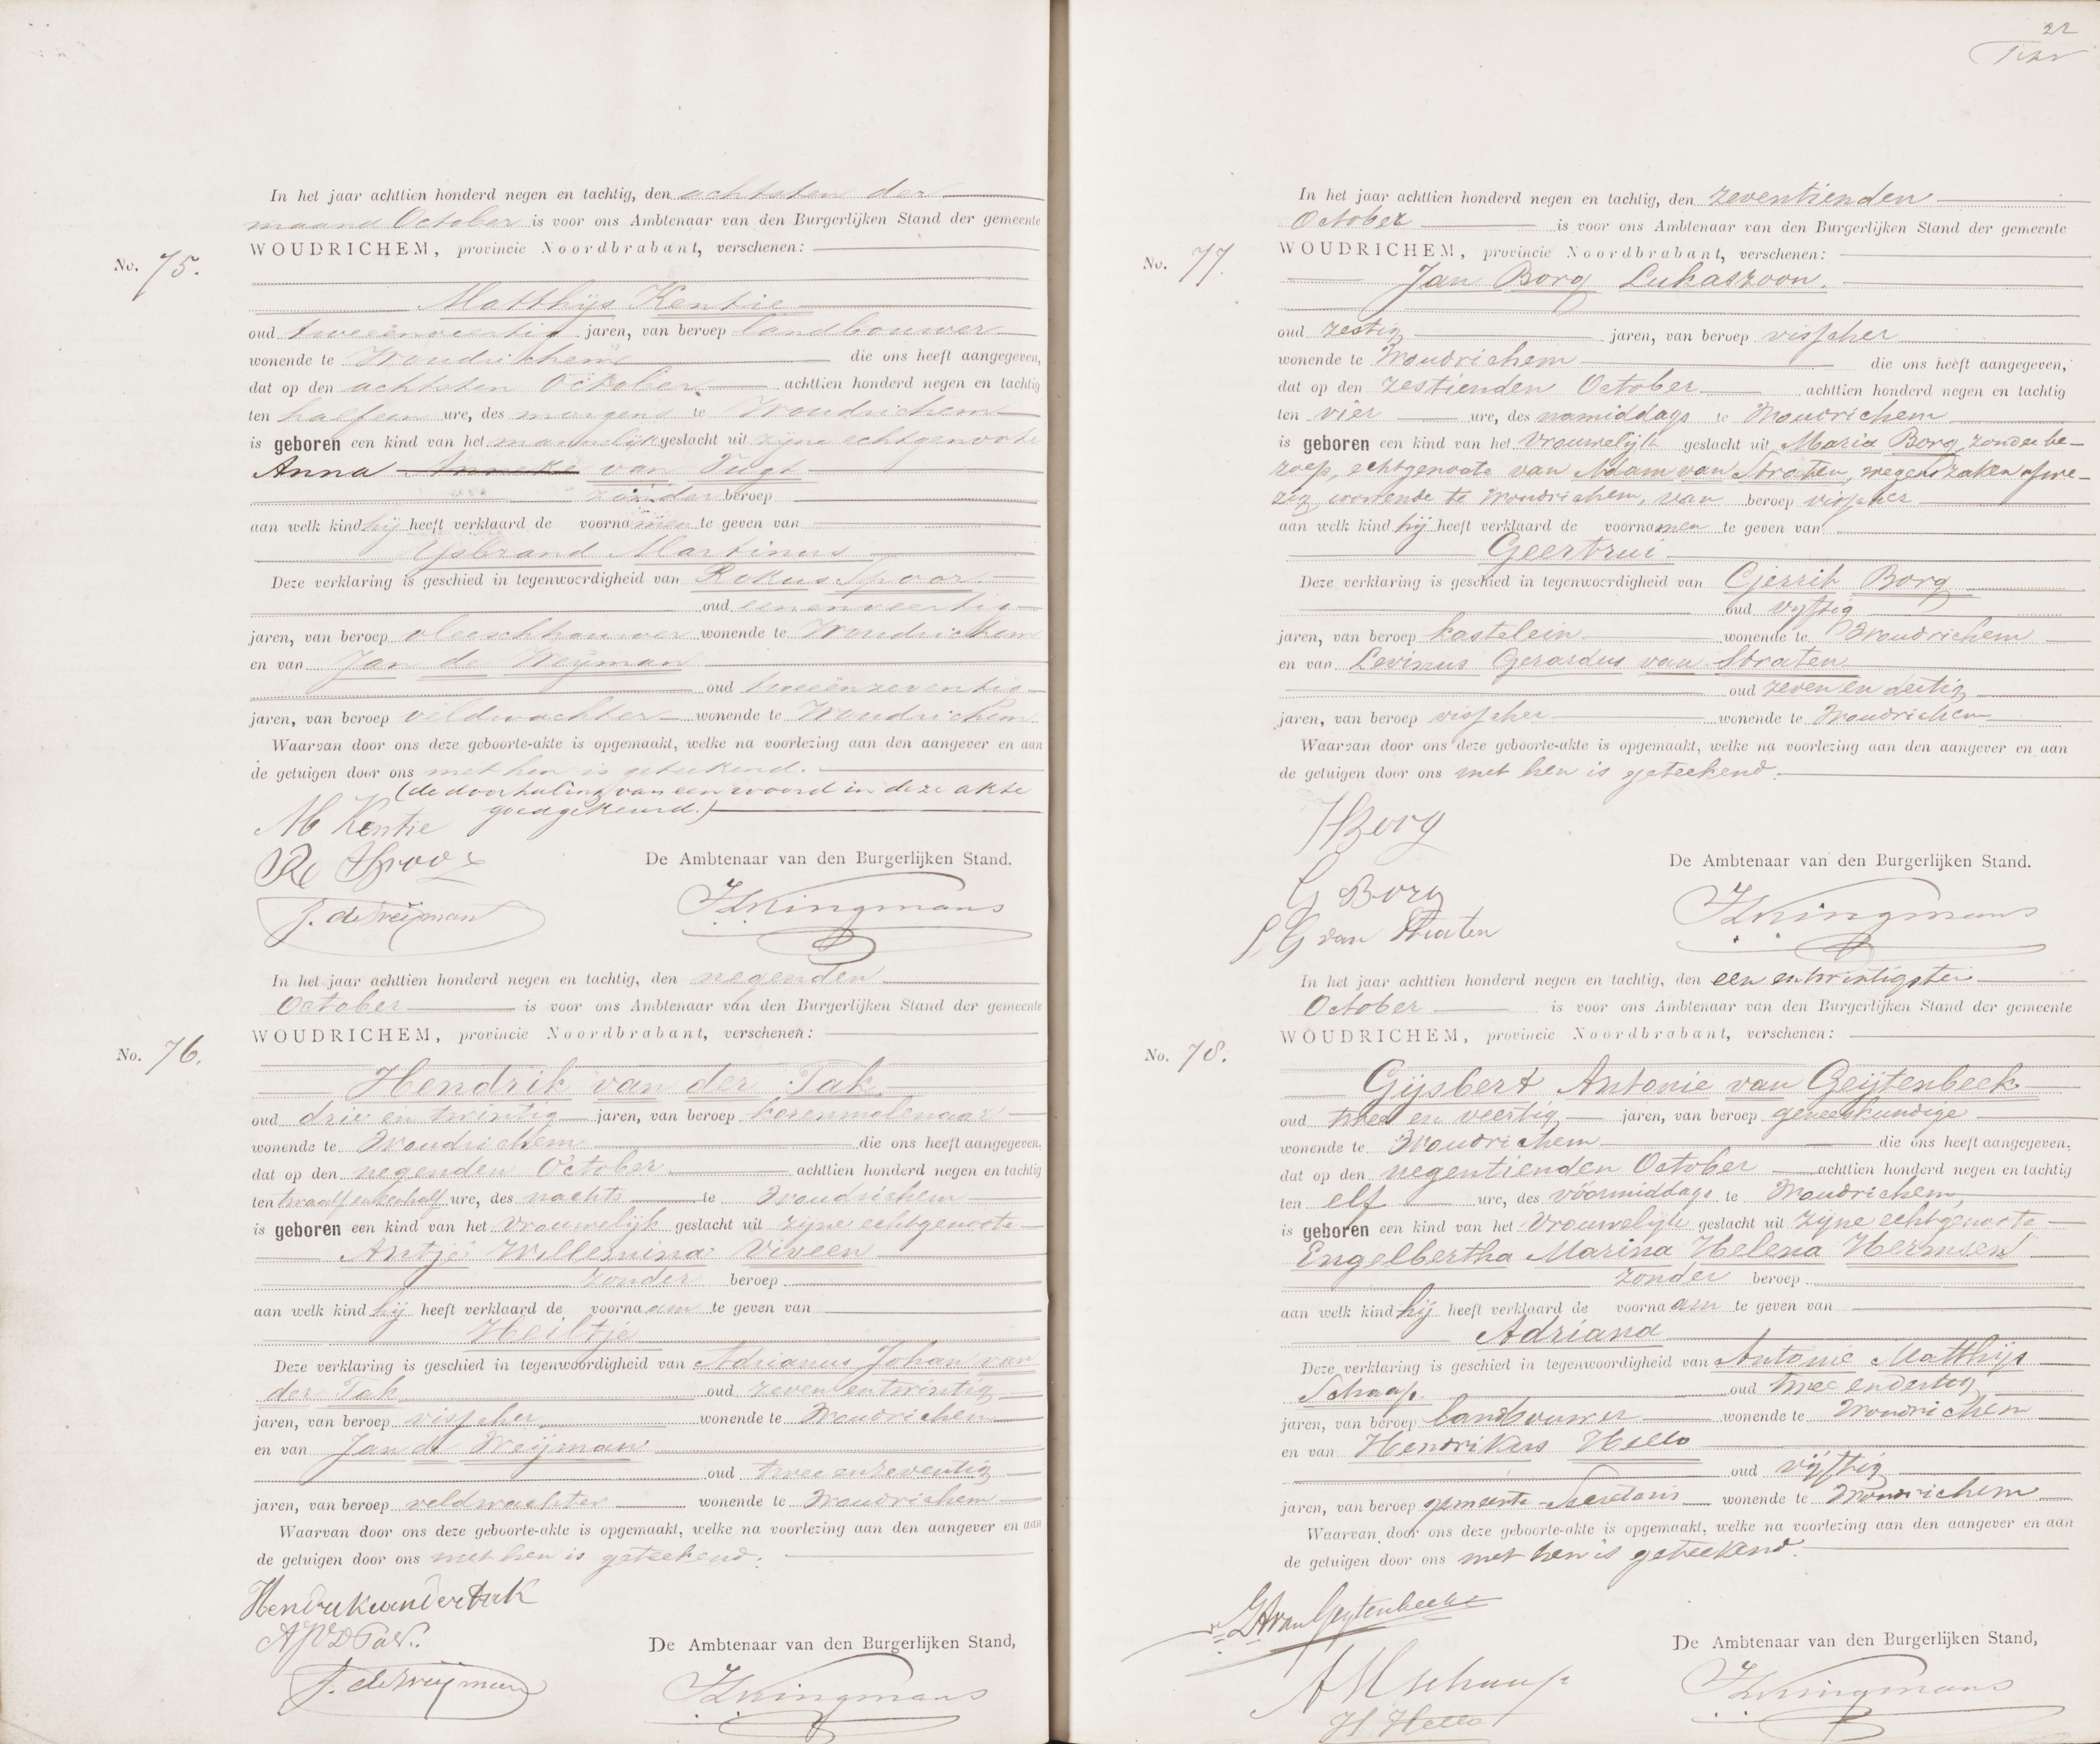 In het jaar achttien honderd negen en tachtig, den achtsten der
maand October is voor ons Ambtenaar van den Burgerlijken Stand der gemeente
No. 75.
WOUDRICHEM, provincie Noordbrabant, verschenen:
Matthijs Kentie
oud tweeenveertig jaren, van beroep landbouwer
wonende te Woudrichem die ons heeft aangegeven,
dat op den achtsten October achttien honderd negen en tachtig
ten half een ure, des morgens te Woudrichem
is geboren een kind van het mannelijk geslacht uit zijne echtgenoote
Anna Anneke van Vugt
zonder beroep
aan welk kind hij heeft verklaard de voornamen te geven van
IJsbrand Martinus
Deze verklaring is geschied in tegenwoordigheid van Rokus Spoor
oud eenenveertig
jaren, van beroep vleeschhouwer wonende te Woudrichem
en van Jan de Weijman
oud tweeënzeventig
jaren, van beroep veldwachter wonende te Woudrichem
Waarvan door ons deze geboorte-akte is opgemaakt, welke na voorlezing aan den aangever en aan
de getuigen door ons met hen is geteekend.
(de doorhaling van een woord in deze akte
goedgekeurd.)
M Kentie
R Spoor
De Ambtenaar van den Burgerlijken Stand.
J. de Weijman
Kingmans
In het jaar achttien honderd negen en tachtig, den negenden
October is voor ons Ambtenaar van den Burgerlijken Stand der gemeente
WOUDRICHEM, provincie Noordbrabant, verschenen:
No. 76.
Hendrik van der Tak
oud drie en twintig jaren, van beroep korenmolenaar
wonende te Woudrichem die ons heeft aangegeven,
dat op den negenden October achttien honderd negen en tachtig
ten twaalf en een half ure, des nachts te Woudrichem
is geboren een kind van het vrouwelijk geslacht uit zijne echtgenoote
Antje Willemina Viveen
zonder beroep
aan welk kind hij heeft verklaard de voornaam te geven van
Heiltje
Deze verklaring is geschied in tegenwoordigheid van Adrianus Johan van
der Tak oud zeven en twintig
jaren, van beroep visscher wonende te Woudrichem
en van Jan de Weijman
oud twee en zeventig
jaren, van beroep veldwachter wonende te Woudrichem
Waarvan door ons deze geboorte-akte is opgemaakt, welke na voorlezing aan den aangever en aan
de getuigen door ons met hen is geteekend.
Hendrik van der tak
AJVD Tak.
De Ambtenaar van den Burgerlijken Stand,
J. de Weijman
Kingmans
22
In het jaar achttien honderd negen en tachtig, den zeventienden
October is voor ons Ambtenaar van den Burgerlijken Stand der gemeente
No. 77.
WOUDRICHEM, provincie Noordbrabant, verschenen:
Jan Borg Lukaszoon.
oud zestig jaren, van beroep visscher
wonende te Woudrichem die ons heeft aangegeven,
dat op den zestienden October achttien honderd negen en tachtig
ten vier ure, des namiddags te Woudrichem
is geboren een kind van het vrouwelijk geslacht uit Maria Borg, zonder be-
roep, echtgenoote van Adam van Straten, wegens zaken afwe-
zig, wonende te Woudrichem, van beroep visscher
aan welk kind hij heeft verklaard de voornamen te geven van
Geertrui
Deze verklaring is geschied in tegenwoordigheid van Gerrit Borg
oud vyftig
jaren, van beroep kastelein wonende te Woudrichem
en van Levinus Gerardus van Straten
oud zeven en dertig
jaren, van beroep visscher wonende te Woudrichem
Waarvan door ons deze geboorte-akte is opgemaakt, welke na voorlezing aan den aangever en aan
de getuigen door ons met hen is geteekend.
J Borg
De Ambtenaar van den Burgerlijken Stand.
G Borg
L G van Straten
Kingmans
In het jaar achttien honderd negen en tachtig, den een en twintigsten
October is voor ons Ambtenaar van den Burgerlijken Stand der gemeente
WOUDRICHEM, provincie Noordbrabant, verschenen:
No. 78.
Gijsbert Antonie van Geijtenbeek
oud twee en veertig jaren, van beroep geneeskundige
wonende te Woudrichem die ons heeft aangegeven,
dat op den negentienden October achttien honderd negen en tachtig
ten elf ure, des vóórmiddags te Woudrichem,
is geboren een kind van het vrouwelijk geslacht uit zijne echtgenoote
Engelbertha Marina Helena Hermsen
zonder beroep
aan welk kind hij heeft verklaard de voornaam te geven van
Adriana
Deze verklaring is geschied in tegenwoordigheid van Antonie Matthijs
Schaap. oud twee en dertig
jaren, van beroep landbouwer wonende te Woudrichem
en van Hendrikus Hello
oud vijftig
jaren, van beroep gemeente-Secretaris wonende te Woudrichem
Waarvan door ons deze geboorte-akte is opgemaakt, welke na voorlezing aan den aangever en aan
de getuigen door ons met hen is geteekend.
GAvanGeytenbeek
De Ambtenaar van den Burgerlijken Stand,
A M Schaap
H Hello
Kingmans